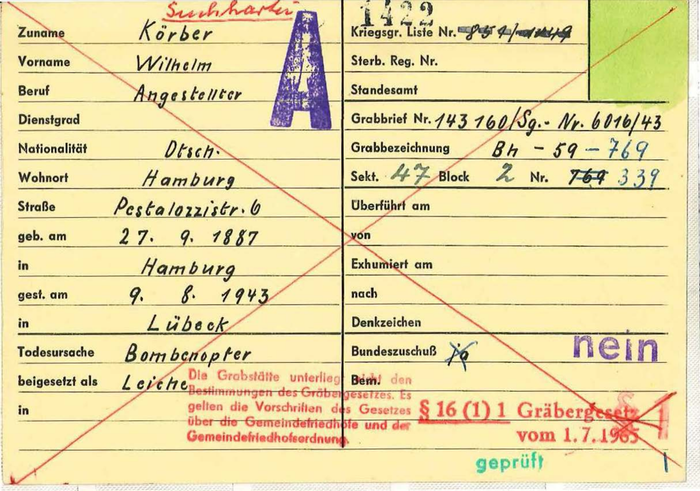 Suchkartei
A
Zuname Körber
Vorname Wilhelm
Beruf Angestellter
Dienstgrad
Nationalität Dtsch.
Wohnort Hamburg
Straße Pestalozzistr. 6
geb. am 27. 9. 1887
in Hamburg
gest. am 9. 8. 1943
in Lübeck
Todesursache Bombenopfer
beigesetzt als Leiche
in
Die Grabstätte unterliegt nicht den
Bestimmungen des Gräbergesetzes. Es
gelten die Vorschriften des Gesetzes
über die Gemeindefriedhöfe und der
Gemeindefriedhofsordnung.
1422
Kriegsgr. Liste Nr.
Sterb. Reg. Nr.
Standesamt
Grabbrief Nr. 143 160/Sg.- Nr. 6016/43
Grabbezeichnung Bh - 59 - 769
Sekt. 47 Block 2 Nr. 769 339
Überführt am
von
Exhumiert am
nach
Denkzeichen
Bundeszuschuß ja nein
Bem.
§ 16 (1) 1 Gräbergesetz
vom 1.7.1965
§ 1
geprüft